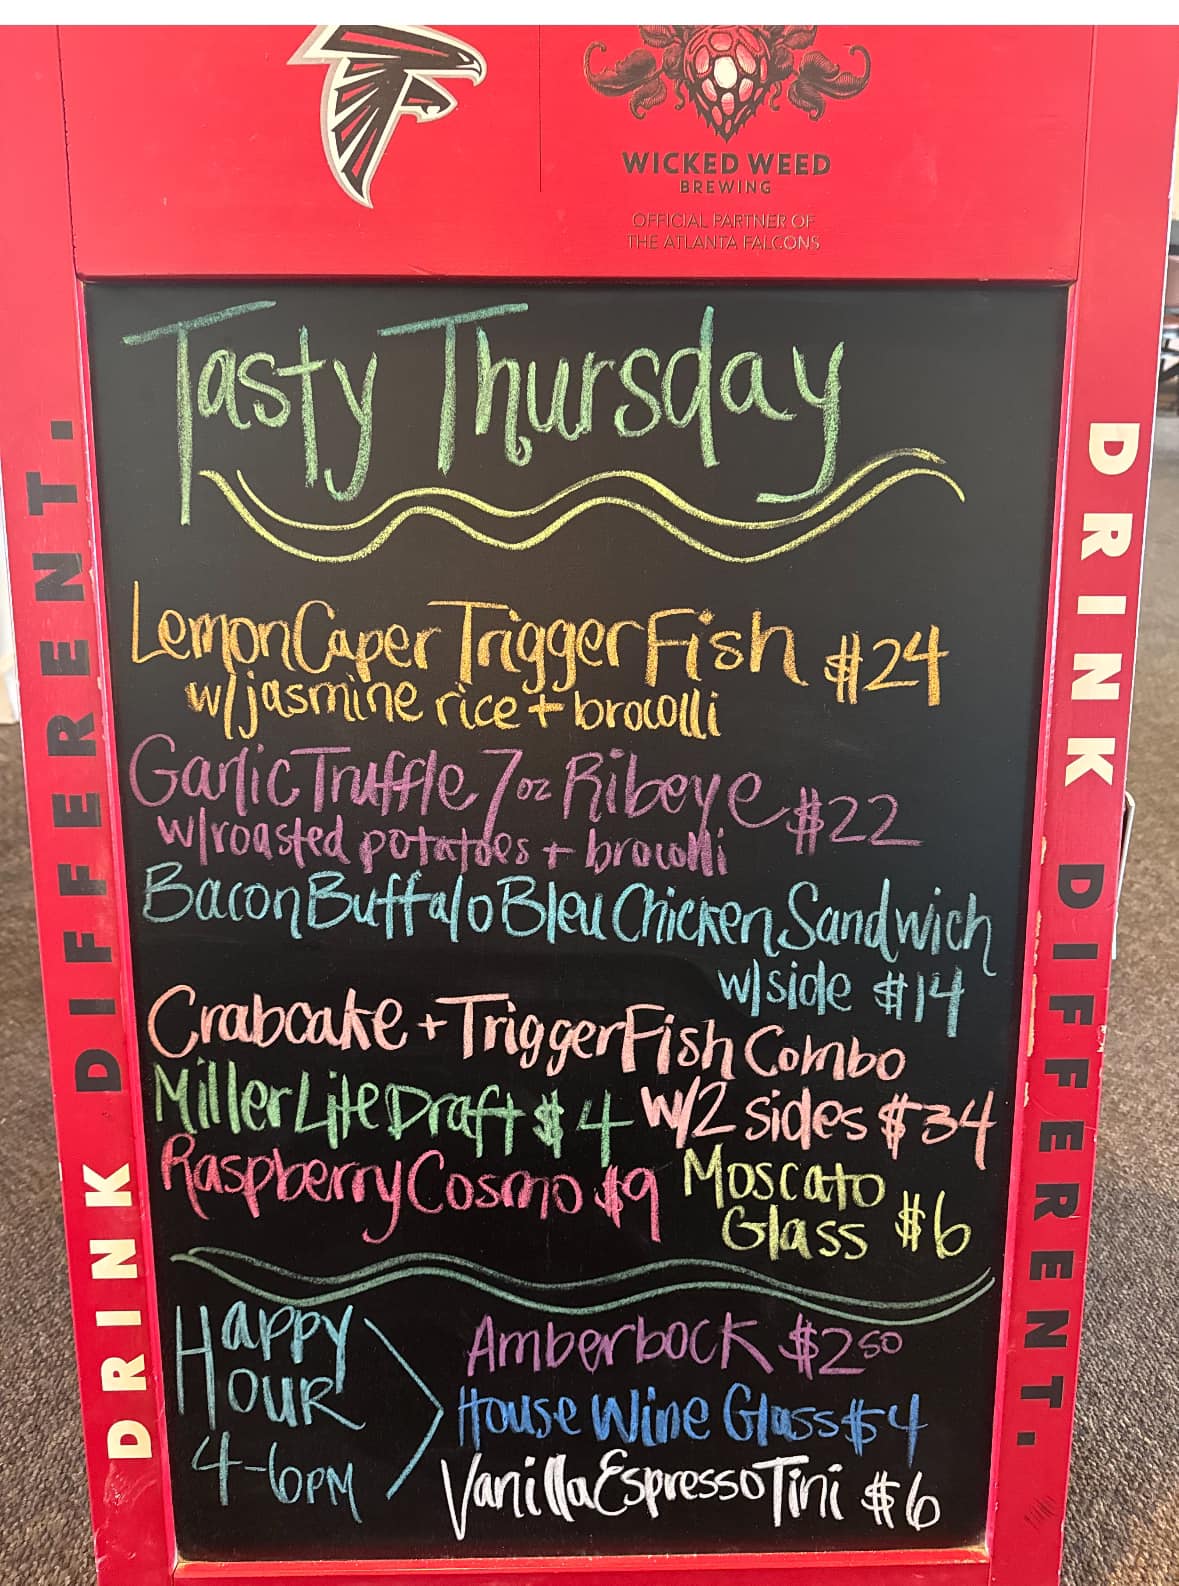 WICKED WEED
BREWING
OFFICIAL PARTNER OF
THE ATLANTA FALCONS
Tasty Thursday
Lemon Caper Trigger Fish $24
w/jasmine rice + brocolli
Garlic Truffle 7oz Ribeye $22
w/roasted potatoes + brocolli
Bacon Buffalo Bleu Chicken Sandwich
w/side $14
Crabcake + Trigger Fish Combo
w/2 sides $34
Miller Lite Draft $4
Raspberry Cosmo $9
Moscato
Glass $6
Happy
Hour
4-6PM
Amberbock $2.50
House Wine Glass $4
Vanilla Espresso Tini $6
DRINK DIFFERENT.
DRINK DIFFERENT.